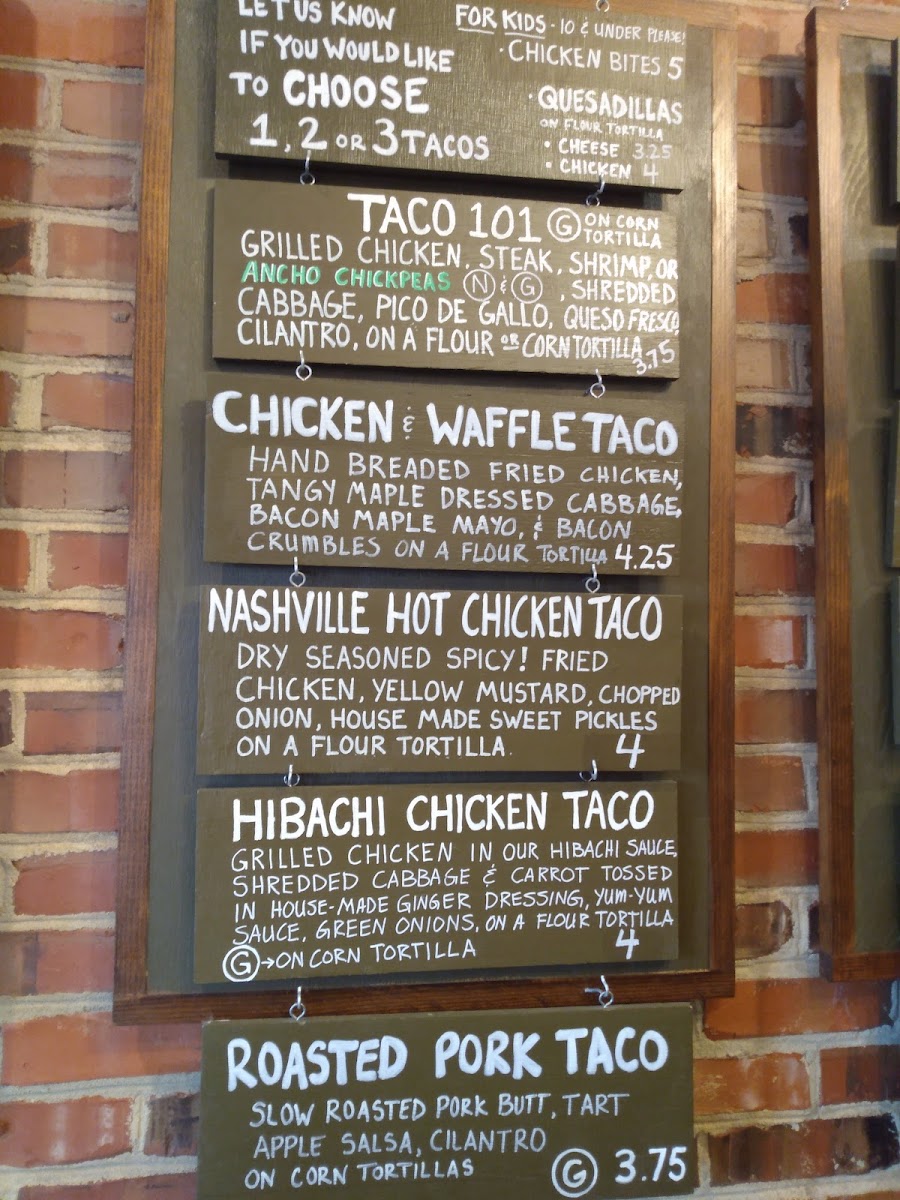 LET US KNOW
IF YOU WOULD LIKE
TO CHOOSE
1, 2 OR 3 TACOS
FOR KIDS - 10 & UNDER PLEASE!
· CHICKEN BITES 5
· QUESADILLAS
ON FLOUR TORTILLA
• CHEESE 3.25
• CHICKEN 4
TACO 101 G ON CORN TORTILLA
GRILLED CHICKEN, STEAK, SHRIMP, OR
ANCHO CHICKPEAS N & G, SHREDDED
CABBAGE, PICO DE GALLO, QUESO FRESCO,
CILANTRO, ON A FLOUR OR CORN TORTILLA
3.75
CHICKEN & WAFFLE TACO
HAND BREADED FRIED CHICKEN,
TANGY MAPLE DRESSED CABBAGE,
BACON MAPLE MAYO, & BACON
CRUMBLES ON A FLOUR TORTILLA 4.25
NASHVILLE HOT CHICKEN TACO
DRY SEASONED SPICY! FRIED
CHICKEN, YELLOW MUSTARD, CHOPPED
ONION, HOUSE MADE SWEET PICKLES
ON A FLOUR TORTILLA. 4
HIBACHI CHICKEN TACO
GRILLED CHICKEN IN OUR HIBACHI SAUCE,
SHREDDED CABBAGE & CARROT TOSSED
IN HOUSE-MADE GINGER DRESSING, YUM-YUM
SAUCE, GREEN ONIONS, ON A FLOUR TORTILLA
G→ON CORN TORTILLA 4
ROASTED PORK TACO
SLOW ROASTED PORK BUTT, TART
APPLE SALSA, CILANTRO
ON CORN TORTILLAS G 3.75